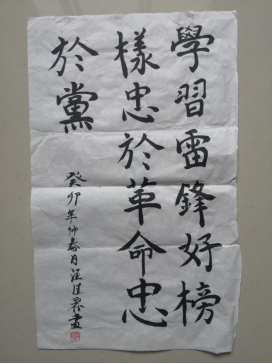 學習雷鋒好榜
樣忠於革命忠
於黨
癸卯年仲春月汪佳